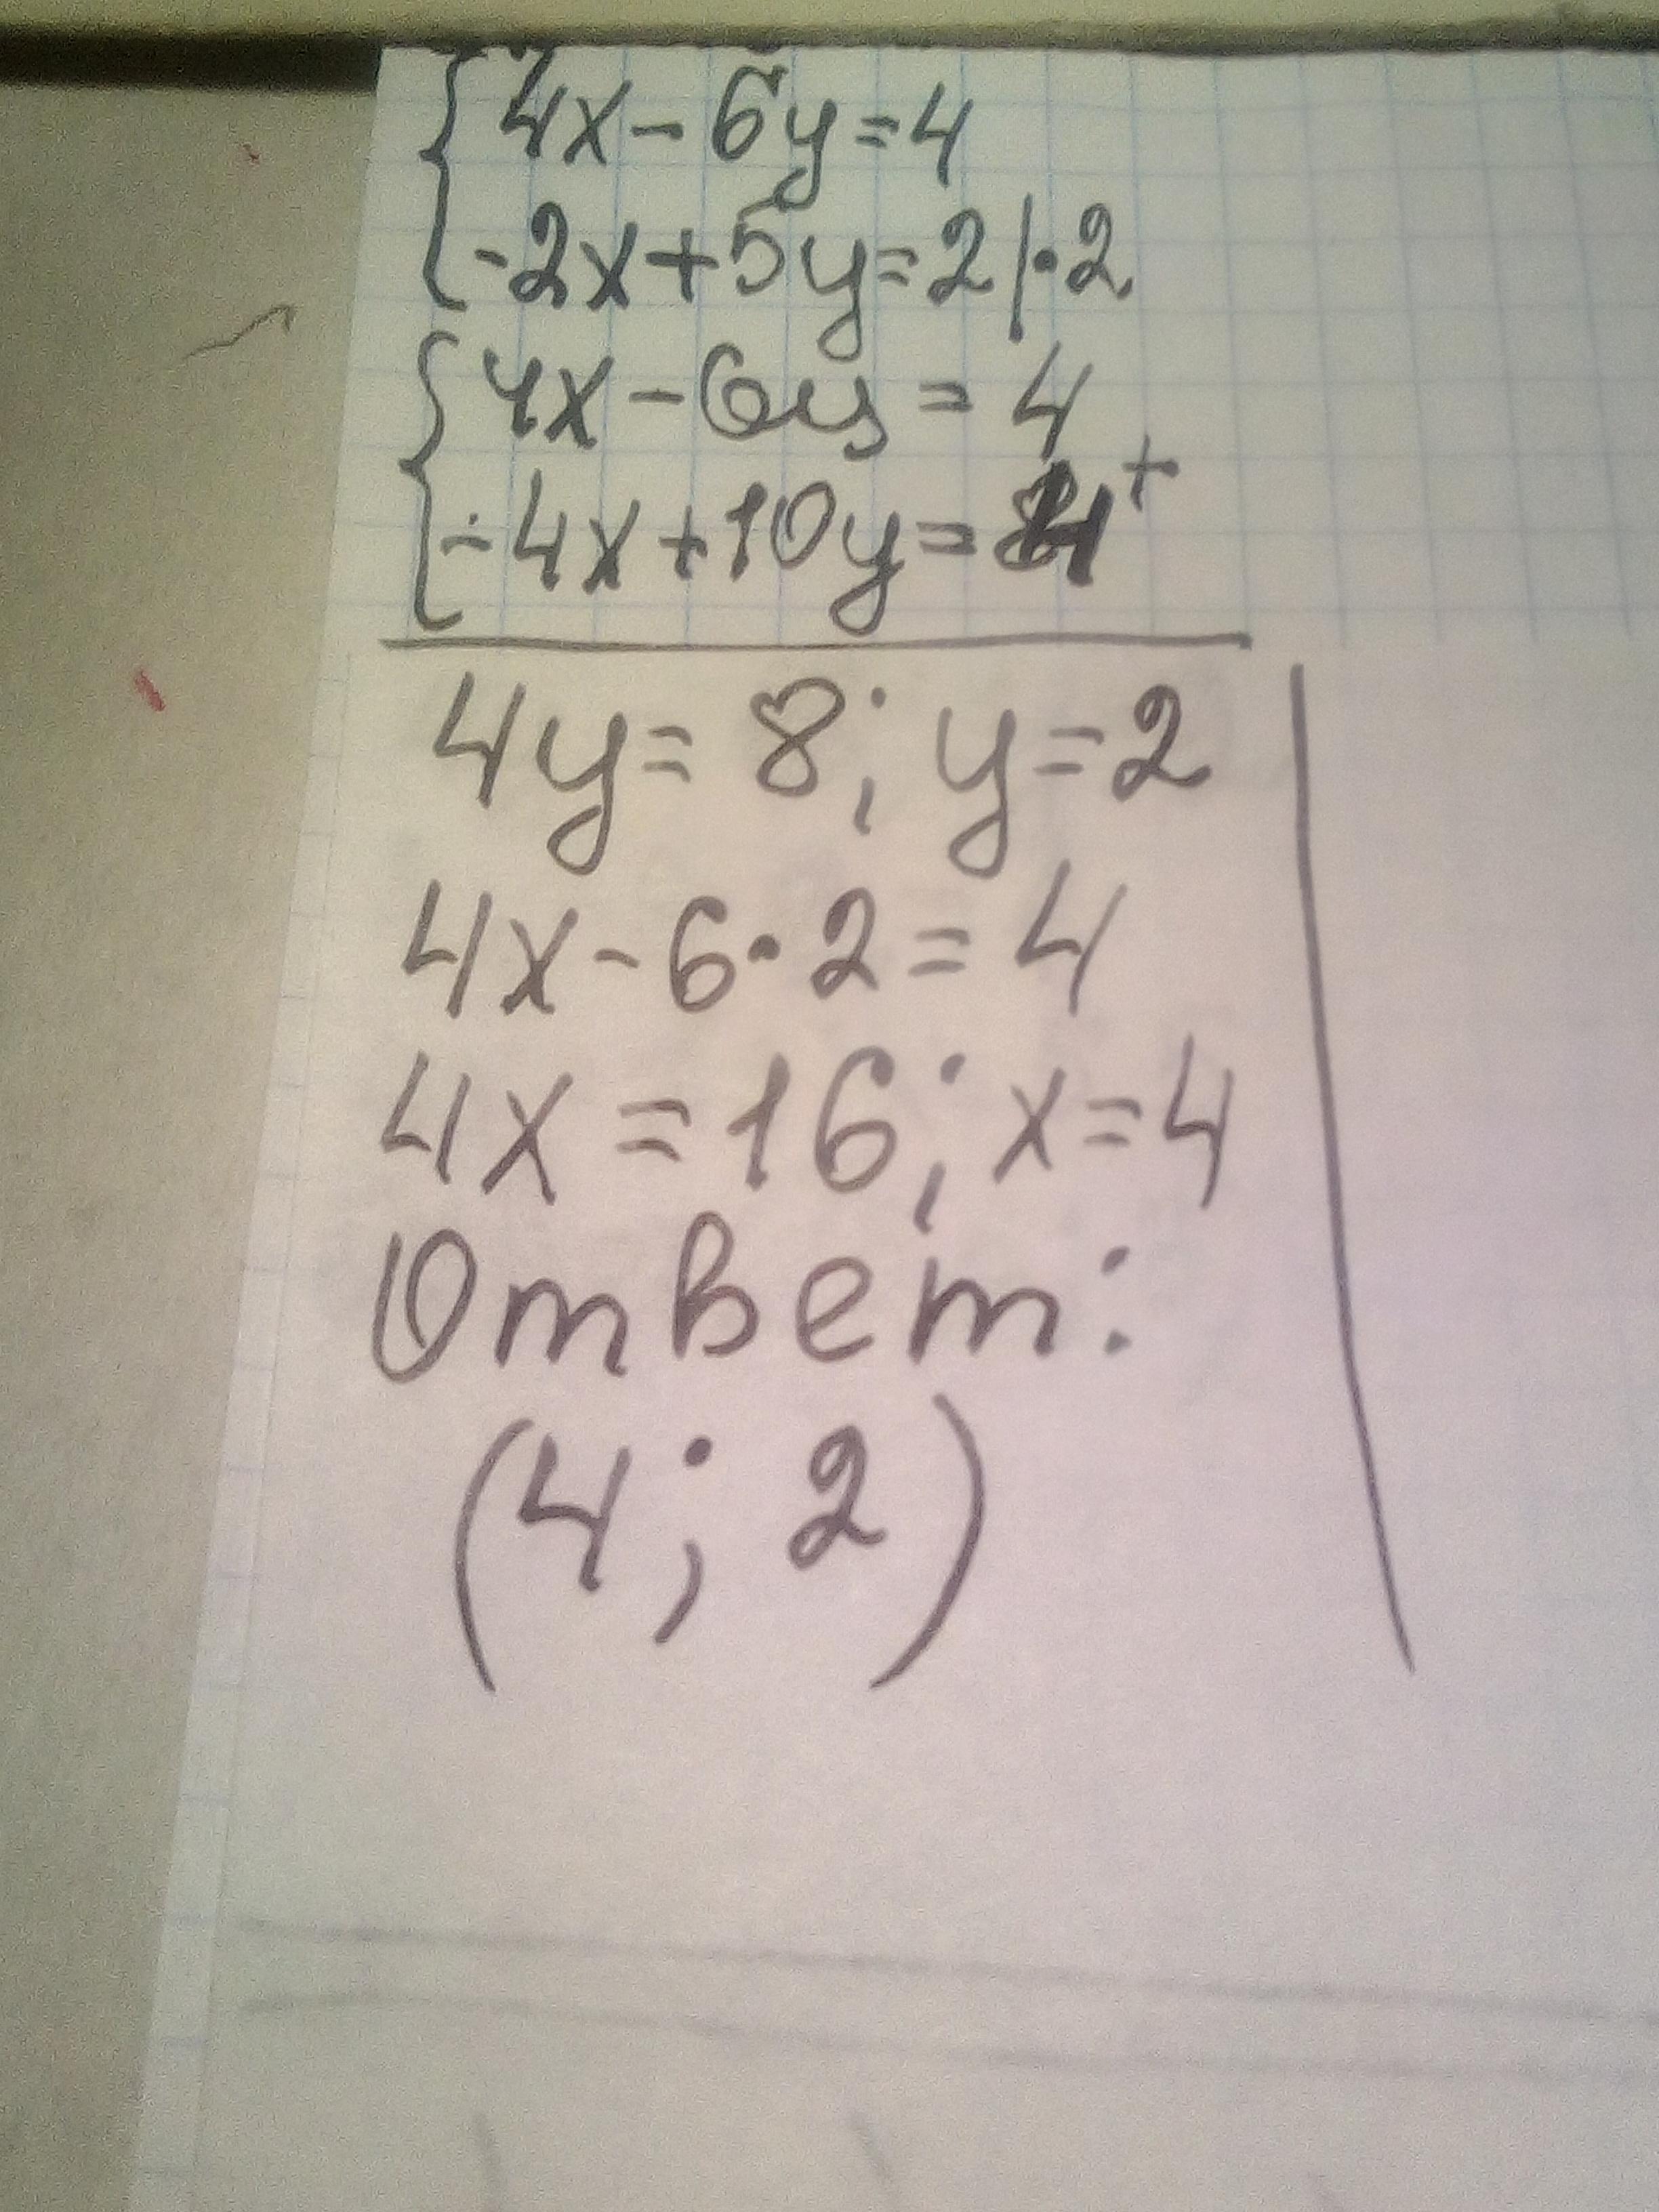 4x-6y=4
-2x+5y=2|·2
4x-6y=4
-4x+10y=4 +
4y=8; y=2
4x-6·2=4
4x=16; x=4
Ответ:
(4; 2)